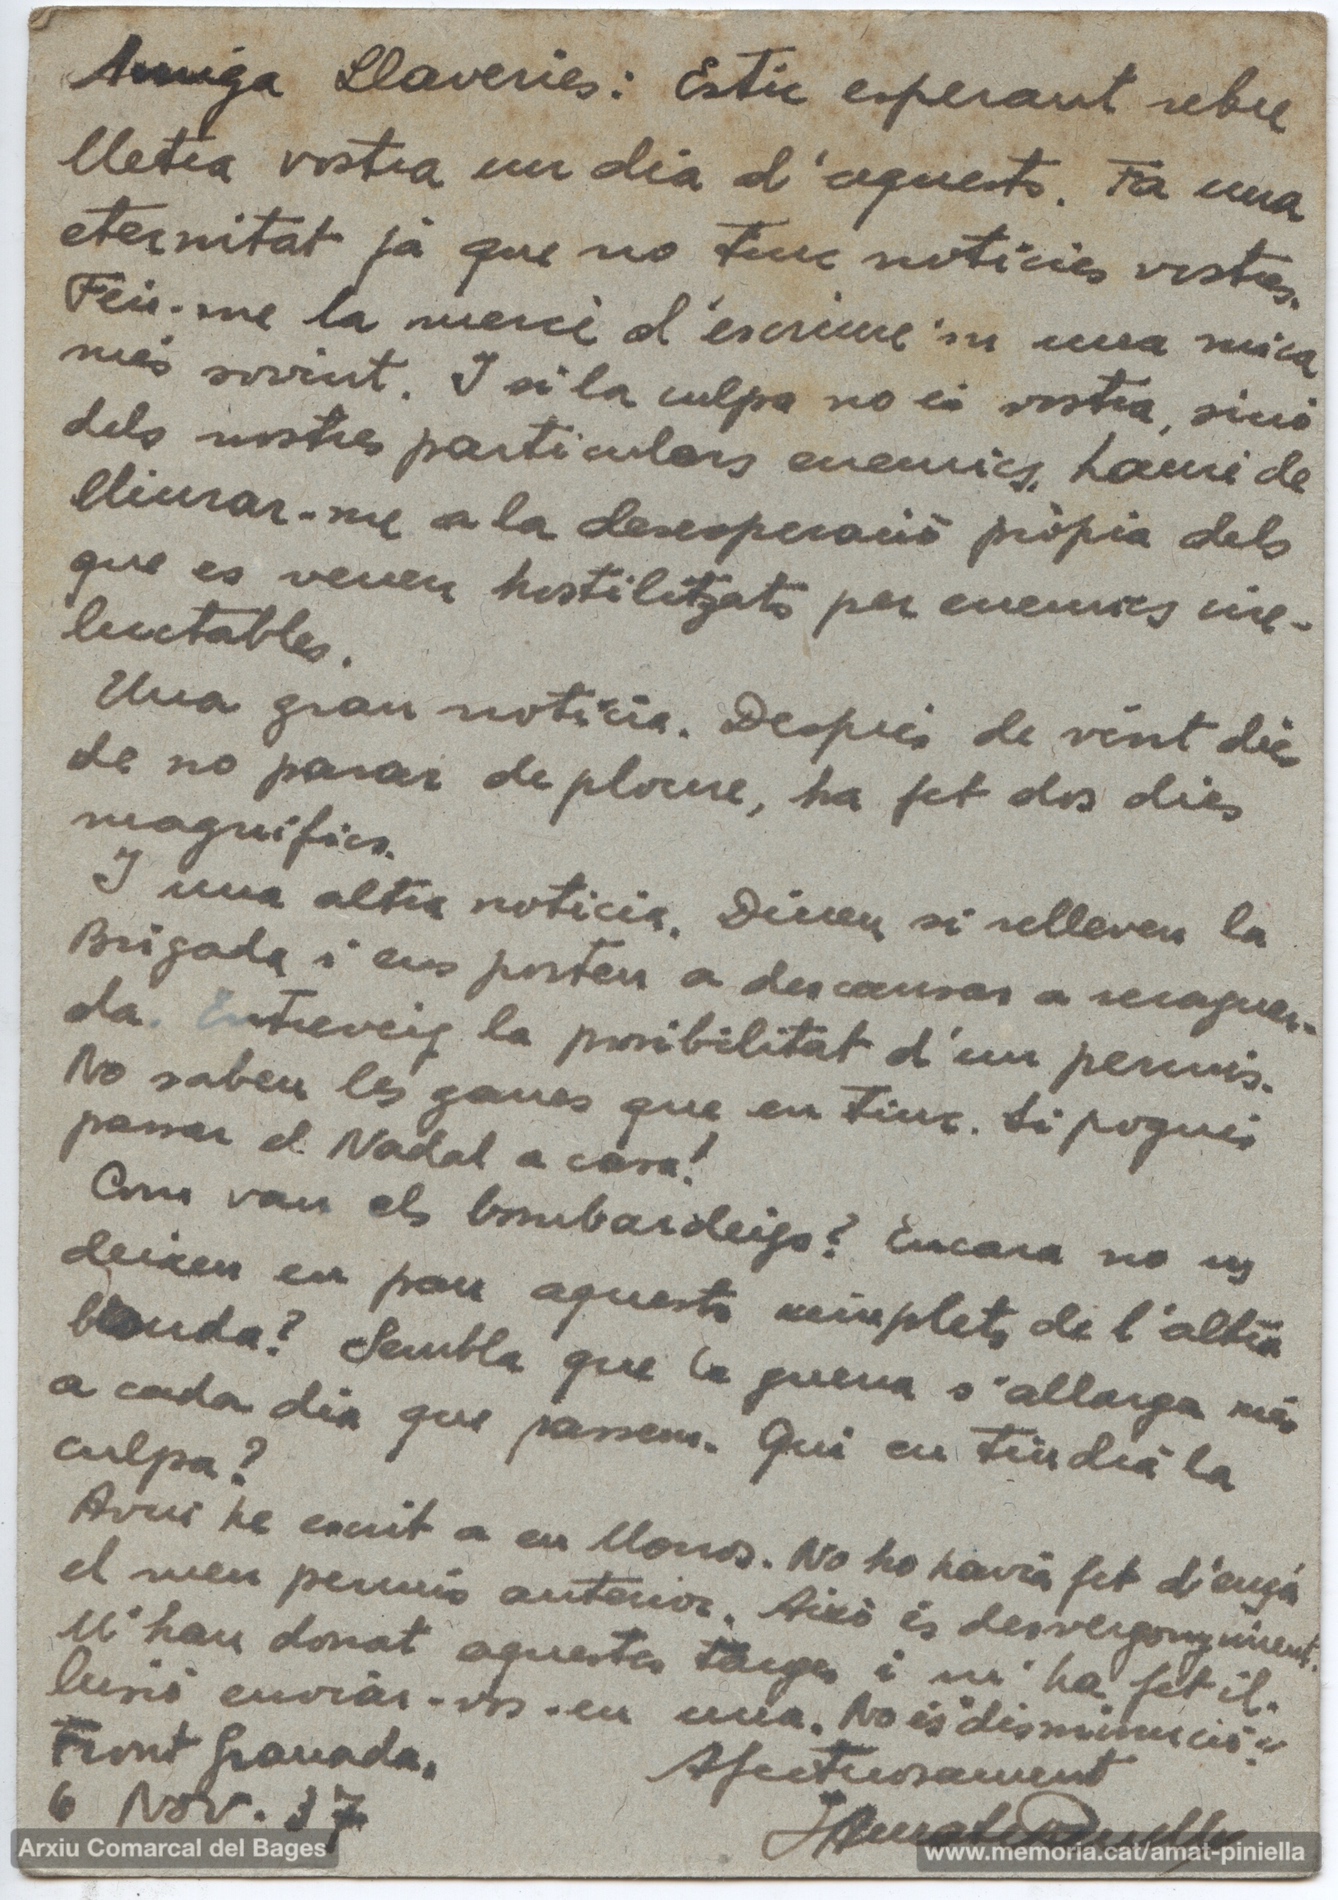 Amiga Llaveries: Estic esperant rebre
lletra vostra un dia d'aquests. Fa una
eternitat ja que no tinc notícies vostres.
Feu-me la mercè d'escriure'm una mica
més sovint. I si la culpa no és vostra, sinó
dels nostres particulars enemics, hauré de
lliurar-me a la desesperació pròpia dels
que es veuen hostilitzats per enemics ine-
luctables.
Una gran notícia. Després de vint dies
de no parar de ploure, ha fet dos dies
magnífics.
I una altra notícia. Diuen si relleven la
Brigada i ens porten a descansar a reraguar-
da. Entreveig la possibilitat d'un permís.
No sabeu les ganes que en tinc. Si pogués
passar el Nadal a casa!
Com van els bombardeigs? Encara no us
deixen en pau aquests ximplets de l'altra
banda? Sembla que la guerra s'allarga més
a cada dia que passem. Qui en tindrà la
culpa?
Avui he escrit a en Monros. No ho havia fet d'ençà
el meu permís anterior. Això és desvergonyiment.
M'han donat aquestes targes i m'ha fet il·
lusió enviar-vos-en una. No és "disminució"?
Front Granada.
Afectuosament
6 Nov. 37
J Amat Piniella
Arxiu Comarcal del Bages
www.memoria.cat/amat-piniella